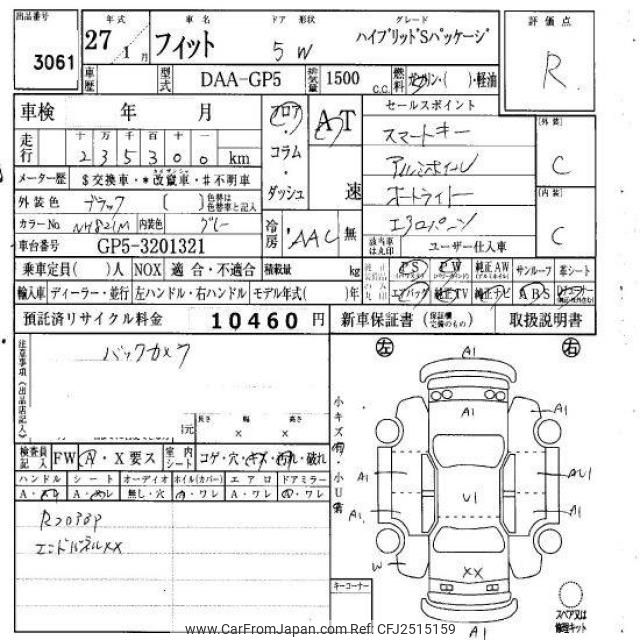 出品番号 3061
年式 27 1月
車名 フィット
ドア 形状 5W
グレード ハイブリッドSパッケージ
評価点 R
車歴
型式 DAA-GP5
排気量 1500 C.C.
燃料 ガソリン・( )・軽油
車検 年 月
走行 十 万 千 百 十 一
2 3 5 3 0 0 km
メーター歴 $交換車・*改竄車・#不明車
外装色 ブラック [ ] 色替は色替車と記入
カラーNo NH821M 内装色 グレー
車台番号 GP5-3201321
フロア・コラム・ダッシュ
AT 速
冷房 AAC 無
セールスポイント
スマートキー
アルミホイール
オートライト
エアロパーツ
該当車は丸印 ユーザー仕入車
[外装] C
[内装] C
乗車定員( )人 NOX 適合・不適合 積載量 kg
PS PW 純正AW サンルーフ 革シート
輸入車 ディーラー・並行 左ハンドル・右ハンドル モデル年式( )年
エアバッグ 純正TV 純正ナビ ABS
預託済リサイクル料金 10460 円
新車保証書 (保証欄完備のもの) 取扱説明書
注意事項《出品店記入》
バックカメラ
長さ 幅 高さ
× ×
検査員記入 FW A・X要ス
室内シート コゲ・穴・キズ・汚れ・破れ
ハンドル シート オーディオ ホイル(カバー) エアロ ドアミラー
A・スレ A・スレ 無し・穴 A・ワレ A・ワレ A・ワレ
エンドパネルXX
小キズ有・小U有
左 右
A1
A1
A1
A1
AU1
A1
U1
A1
W
XX
A1
キーコーナー
スペア又は修理キット
www.CarFromJapan.com Ref: CFJ2515159